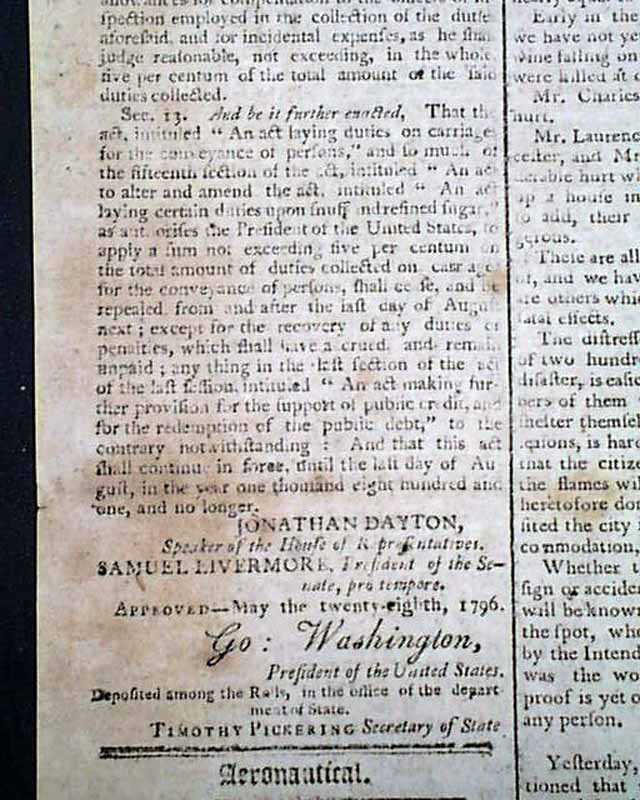 allowances for compensation to the officers of in-
spection employed in the collection of the duties
aforesaid, and for incidental expenses, as he shall
judge reasonable, not exceeding, in the whole
five per centum of the total amount of the said
duties collected.
Sec. 13. And be it further enacted, That the
act, intituled "An act laying duties on carriages
for the conveyance of persons," and so much of
the fifteenth section of the act, intituled "An act
to alter and amend the act, intituled "An act
laying certain duties upon snuff and refined sugar,"
as authorises the President of the United States, to
apply a sum not exceeding five per centum on
the total amount of duties collected on carriages
for the conveyance of persons, shall cease, and be
repealed from and after the last day of August
next; except for the recovery of any duties or
penalties, which shall have accrued and remain
unpaid; any thing in the last section of the act
of the last session, intituled "An act making fur-
ther provision for the support of public credit, and
for the redemption of the public debt," to the
contrary notwithstanding: And that this act
shall continue in force, until the last day of Au-
gust, in the year one thousand eight hundred and
one, and no longer.
JONATHAN DAYTON,
Speaker of the House of Representatives.
SAMUEL LIVERMORE, President of the Se-
nate, pro tempore.
APPROVED—May the twenty-eighth, 1796.
Go: Washington,
President of the United States.
Deposited among the Rolls, in the office of the depart-
ment of State.
TIMOTHY PICKERING Secretary of State
Aeronautical.
Early in the
we have not ye
wine falling on
were killed at
Mr. Charles
hurt.
Mr. Laurenc
and M
hurt w
up a house in
to add, their
There are all
and we hav
are others whic
fatal effects.
The distresse
of two hundr
disaster, is easi
bers of them
shelter themsel
is hard
that the citize
the flames wil
heretofore don
sited the city
commodation,
Whether t
sign or accider
will be known
the spot, whe
by the Intend
was the wo
proof is yet o
any person.
Yesterday,
tioned that